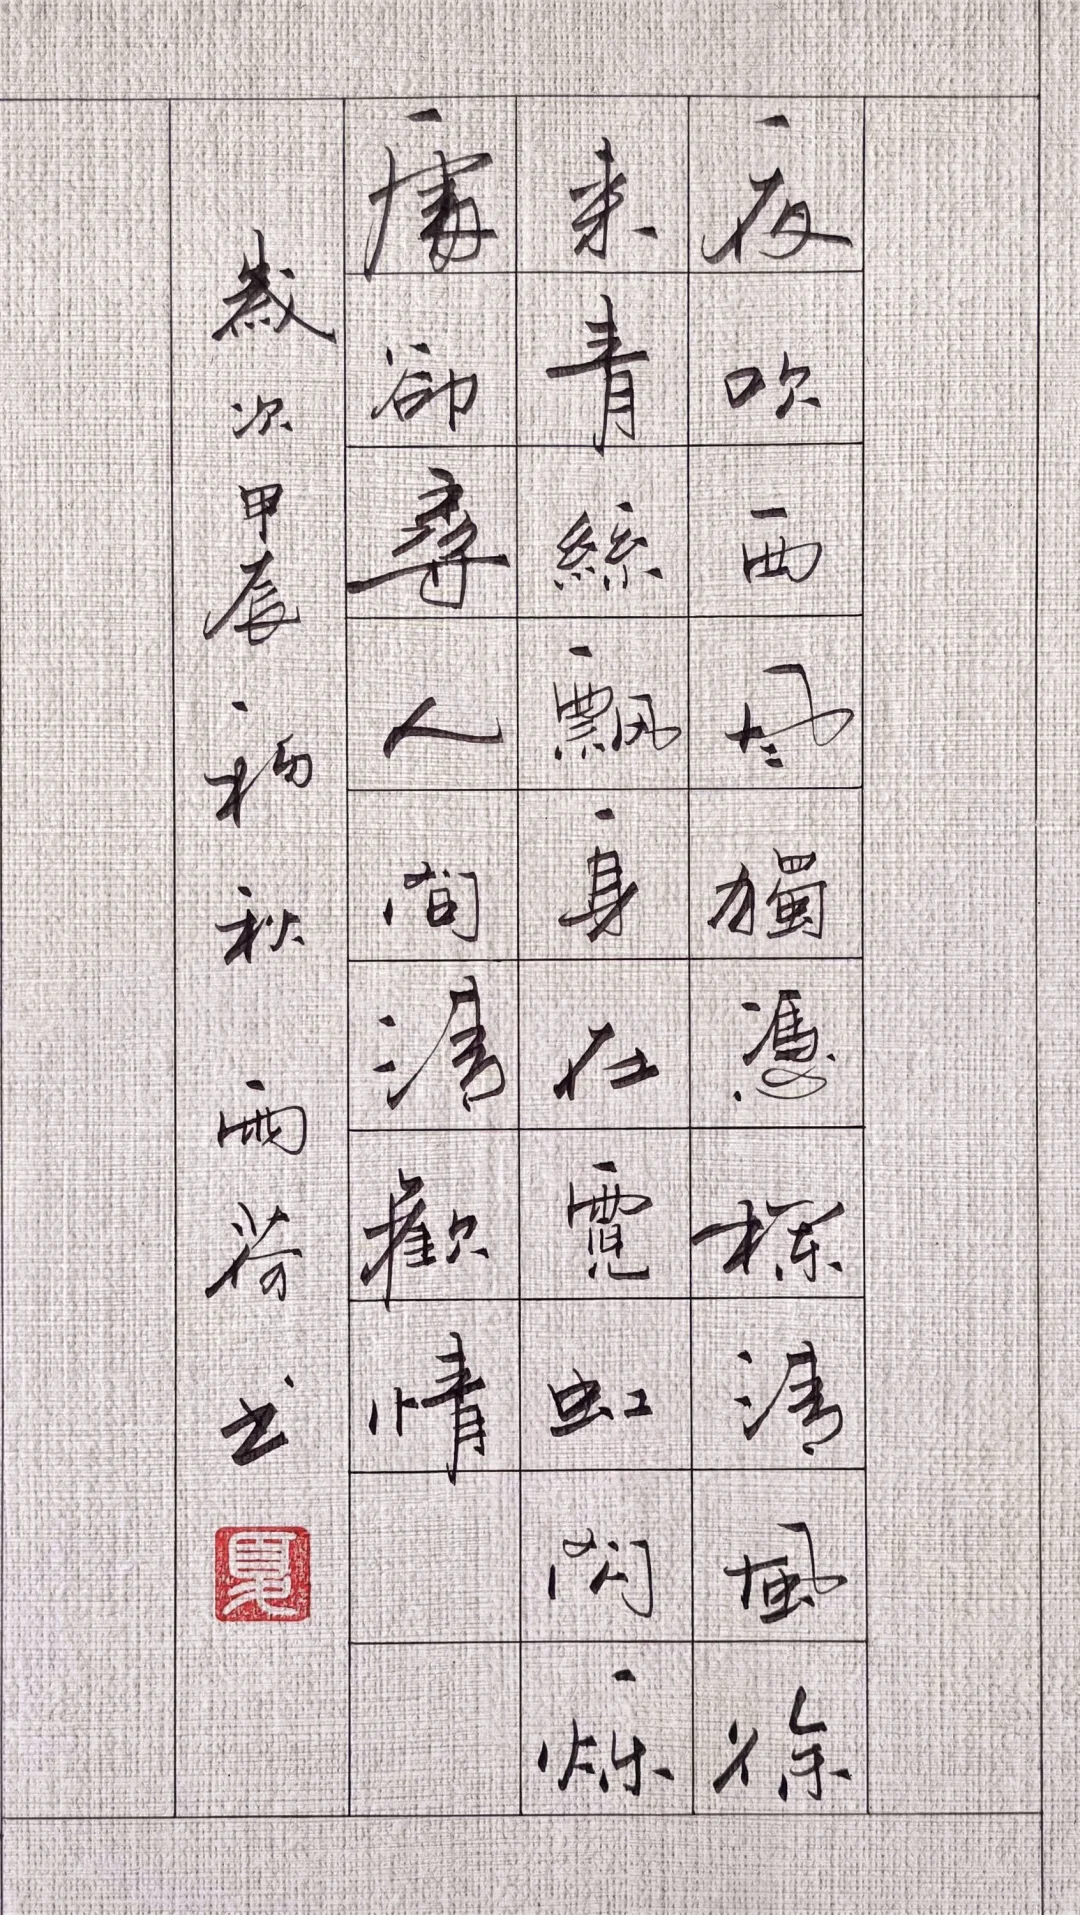 夜吹西風獨憑欄清風徐
來青絲飄身在霓虹閃爍
處卻尋人間清歡情
歲次甲辰初秋雨荷书
夏